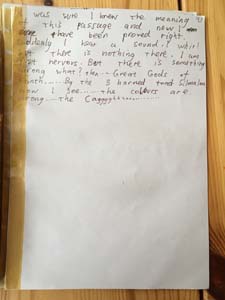 was sure I knew the meaning
of this passage and now I
have been proved right.
Suddenly I hear a sound! What!
But there is nothing there. I am
just nervous. But there is something
wrong what? Then... Great Gods of
By the 3 horned
now I see...... the colours are
wrong... the Cagghh..........